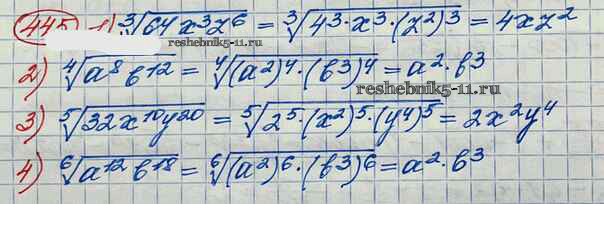 445 1) ∛(64x³z⁶) = ∛(4³·x³·(z²)³) = 4xz²
reshebnik5-11.ru
2) ⁴√(a⁸b¹²) = ⁴√((a²)⁴·(b³)⁴) = a²·b³
reshebnik5-11.ru
3) ⁵√(32x¹⁰y²⁰) = ⁵√(2⁵·(x²)⁵·(y⁴)⁵) = 2x²y⁴
4) ⁶√(a¹²b¹⁸) = ⁶√((a²)⁶·(b³)⁶) = a²·b³